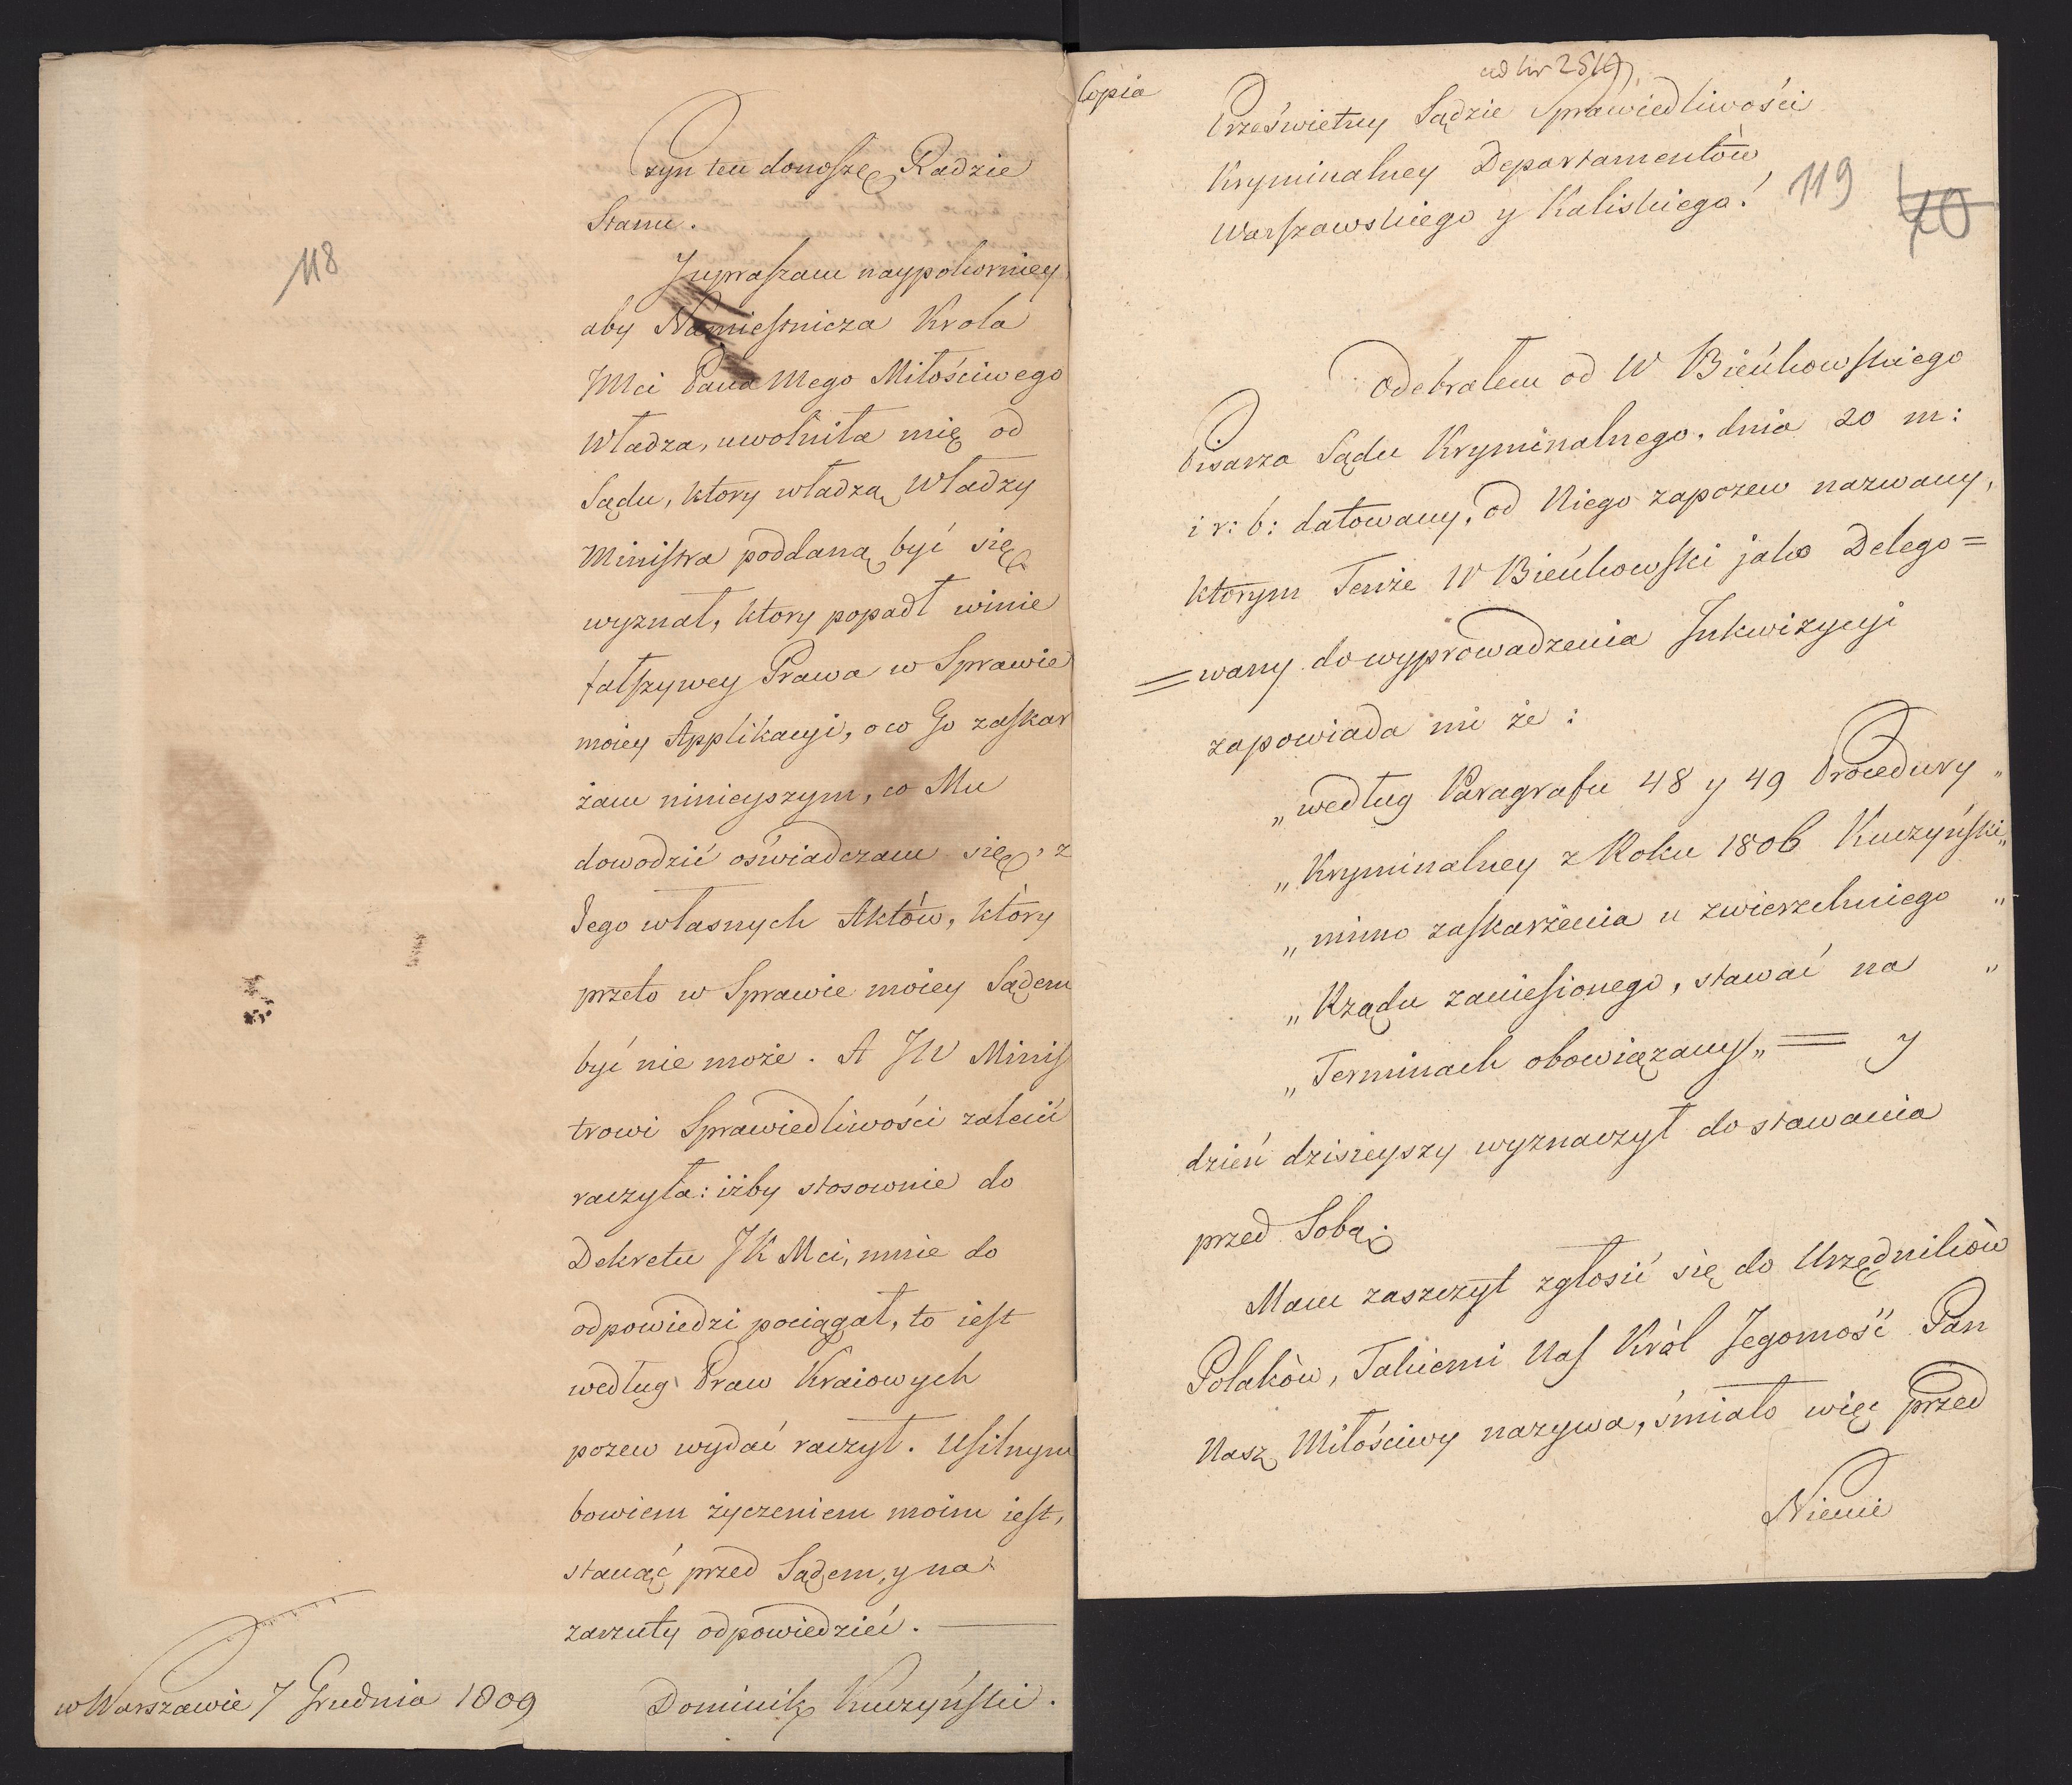 118
Czyn ten donoszę Radzie
Stanu.
I upraszam naypokorniey
aby Namiestnicza Krola
JMci Pana Mego Miłościwego
Władza, uwolniła mię od
Sądu, ktory władzą Władzy
Ministra poddaną być się
wyznał, ktory popadł winie
fałszywey Prawa w Sprawie
moiey Applikacyi, o co Go zaskar
żam ninieyszym, co Mu
dowodzić oświadczam się, z
Jego własnych Aktów, który
przeto w Sprawie moiey Sądem
być nie może. A JW Minis
trowi Sprawiedliwości zalecić
raczyła: iżby stosownie do
Dekretu JK Mci, mnie do
odpowiedzi pociągał, to iest
według Praw Kraiowych
pozew wydać raczył. Usilnym
bowiem życzeniem moim iest,
stanąć przed Sądem, y na
zarzuty odpowiedzieć.
w Warszawie 7 Grudnia 1809 Dominik Kuczyński.
Copia
ad Nr 2519
Prześwietny Sądzie Sprawiedliwości
Kryminalney Departamentòw
Warszawskiego y Kaliskiego!
119
40
Odebrałem od W Bieńkowskiego
Pisarza Sądu Kryminalnego, dnia 20 m:
i r: b: datowany, od Niego zapozew nazwany,
ktorym Tenże W Bieńkowski jako Delego=
=wany do wyprowadzenia Inkwizycyi
zapowiada mi że:
„według Paragrafu 48 y 49 Procedury „
„Kryminalney z Roku 1806 Kuczyński „
„mimo zaskarżenia u zwierzchniego „
„Rządu zaniesionego, stawać na „
„Terminach obowiązany„ = y
dzień dzisieyszy wyznaczył do stawania
przed Sobą.
Mam zaszczyt zgłosić się do Urzędnikòw
Polakòw, Takiemi Nas Kròl Jegomość Pan
Nasz Miłościwy nazywa, śmiało więc przed
Niemi